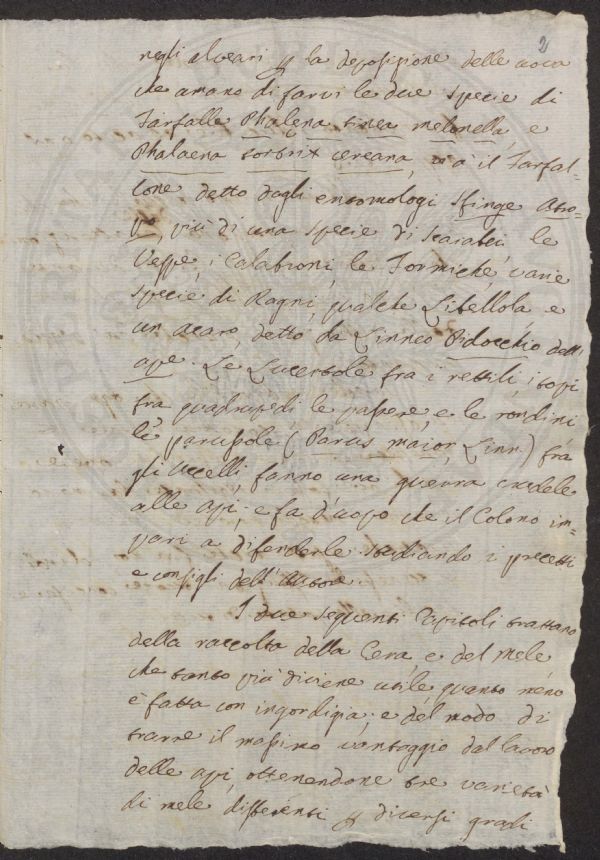 2
negli alveari per la deposizione delle uova
che amano di farvi le due specie di
Farfalle Phalena tinea melonella, e
Phalaena cereana, v'à il Farfal-
lone detto dagli entomologi Sfinge Atro-
po, più di una specie di Scarabei, le
Vespe, i Calabroni, le Formiche, varie
specie di Ragni, qualche Libellola e
un acaro, detto da Linneo Pidocchio dell'
ape. Le Lucertole fra i rettili, i topi
fra quadrupedi, le passere, e le rondini
le parussole (Parus maior Linn.) fra
gli Uccelli, fanno una guerra crudele
alle api; e fa d'uopo che il Colono im=
pari a difenderle studiando i precetti
e consigli dell'Autore.
I due seguenti Capitoli trattano
della raccolta della Cera, e del mele
che tanto più diviene utile quanto meno
è fatta con ingordigia; e del modo di
trarre il massimo vantaggio dal lavoro
delle api, ottenendone tre varietà
di mele differenti per diversi gradi